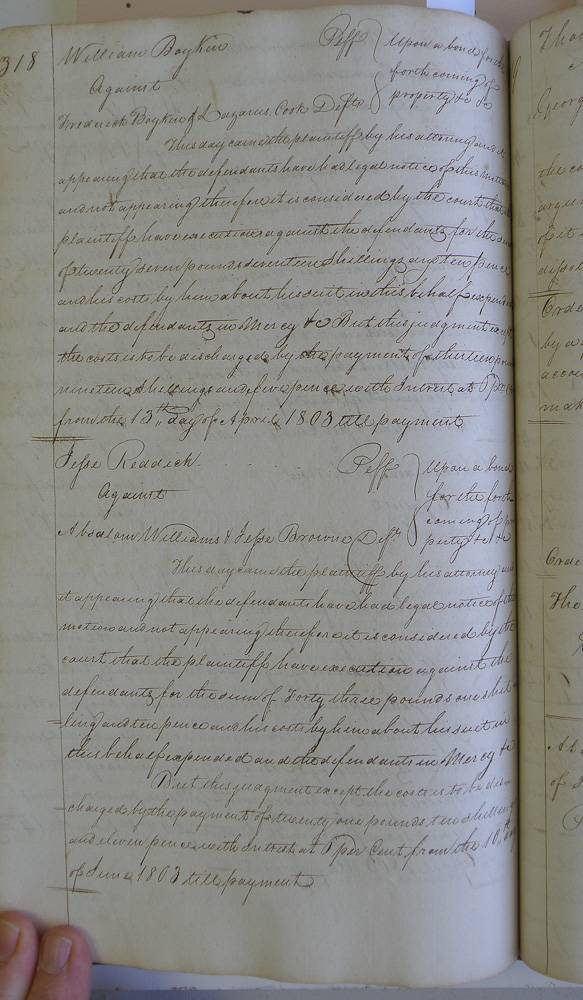 318
William Boykin Plff Upon a bond for the
Against forth coming of
Frederick Boykin & Lazarus Cook Defts property &c &c
This day came the plaintiff by his attorney and it
appearing that the defendants have had legal notice of this motion
and not appearing therefore it is considered by the court that the
plaintiff have execution against the defendants for the sum
of twenty seven pounds seventeen shillings and ten pence
and his costs by him about his suit in this behalf expended
and the defendants in Mercy &c But this judgment except
the costs is to be discharged by the payment of thirteen pounds
nineteen shillings and five pence with Interest at 6 per Ct
from the 13th day of April 1803 till payment
Jesse Reddick Plff Upon a bond
Against for the forth
coming of pro
Absalom Williams & Jesse Browne Defts perty &c &c
This day came the plaintiff by his attorney and
it appearing that the defendants have had legal notice of this
motion and not appearing therefore it is considered by the
court that the plaintiff have execution against the
defendants for the sum of Forty three pounds one shil
ling and ten pence and his costs by him about his suit in
this behalf expended and the defendants in Mercy &c
But this judgment except the costs is to be dis
charged by the payment of twenty one pounds ten shillings
and eleven pence with Interest at 6 per Cent from the 10th day
of June 1803 till payment